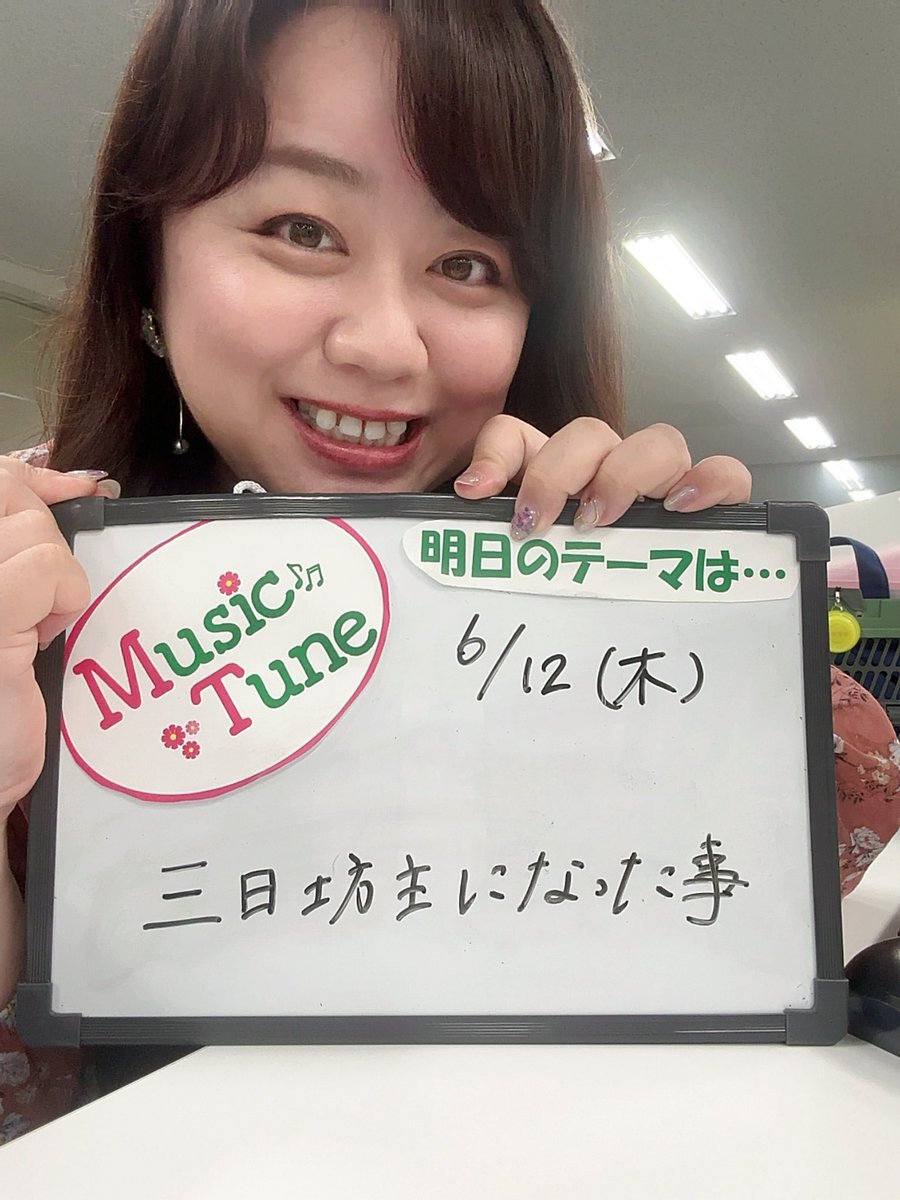 Music
Tune
明日のテーマは…
6/12(木)
三日坊主になった事